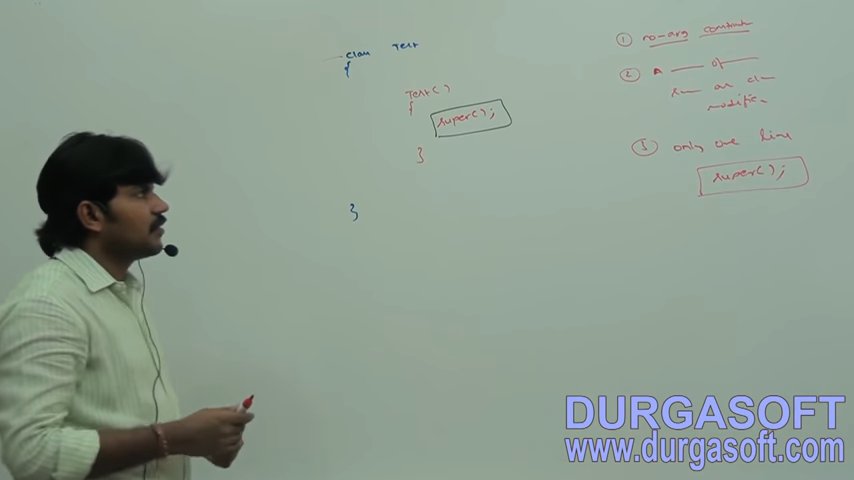 class Test
{
Test()
{
super();
}
}
① no-arg
② A — of
modifier
③ only one line
super();
DURGASOFT
www.durgasoft.com